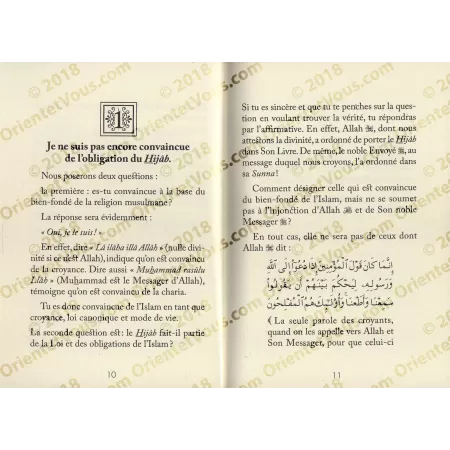 1
Je ne suis pas encore convaincue
de l'obligation du Hijâb.
Nous poserons deux questions :
la première : es-tu convaincue à la base du
bien-fondé de la religion musulmane?
La réponse sera évidemment :
« Oui, je le suis! »
En effet, dire « Lâ ilâha illâ Allâh » (nulle divinité
si ce n'est Allah), indique qu'on est convaincu
de la croyance. Dire aussi « Muḥammad rasûlu
Llâh » (Muḥammad est le Messager d'Allah),
témoigne qu'on est convaincu de la charia.
Tu es donc convaincue de l'Islam en tant que
croyance, loi canonique et mode de vie.
La seconde question est : le Hijâb fait-il partie
de la Loi et des obligations de l'Islam ?
10
Si tu es sincère et que tu te penches sur la ques-
tion en voulant trouver la vérité, tu répondras
par l'affirmative. En effet, Allah ﷻ, dont nous
attestons la divinité, a ordonné de porter le Hijâb
dans Son Livre. De même, le noble Envoyé ﷺ, au
message duquel nous croyons, l'a ordonné dans
sa Sunna!
Comment désigner celle qui est convaincue
du bien-fondé de l'Islam, mais ne se soumet
pas à l'injonction d'Allah ﷻ et de Son noble
Messager ﷺ?
En tout cas, elle ne sera pas de ceux dont
Allah ﷻ dit :
إِنَّمَا كَانَ قَوْلَ الْمُؤْمِنِينَ إِذَا دُعُوا إِلَى اللَّهِ
وَرَسُولِهِ لِيَحْكُمَ بَيْنَهُمْ أَن يَقُولُوا
سَمِعْنَا وَأَطَعْنَا وَأُولَٰئِكَ هُمُ الْمُفْلِحُونَ
❨ La seule parole des croyants,
quand on les appelle vers Allah et
Son Messager, pour que celui-ci
11
© 2018 OrientetVous.com